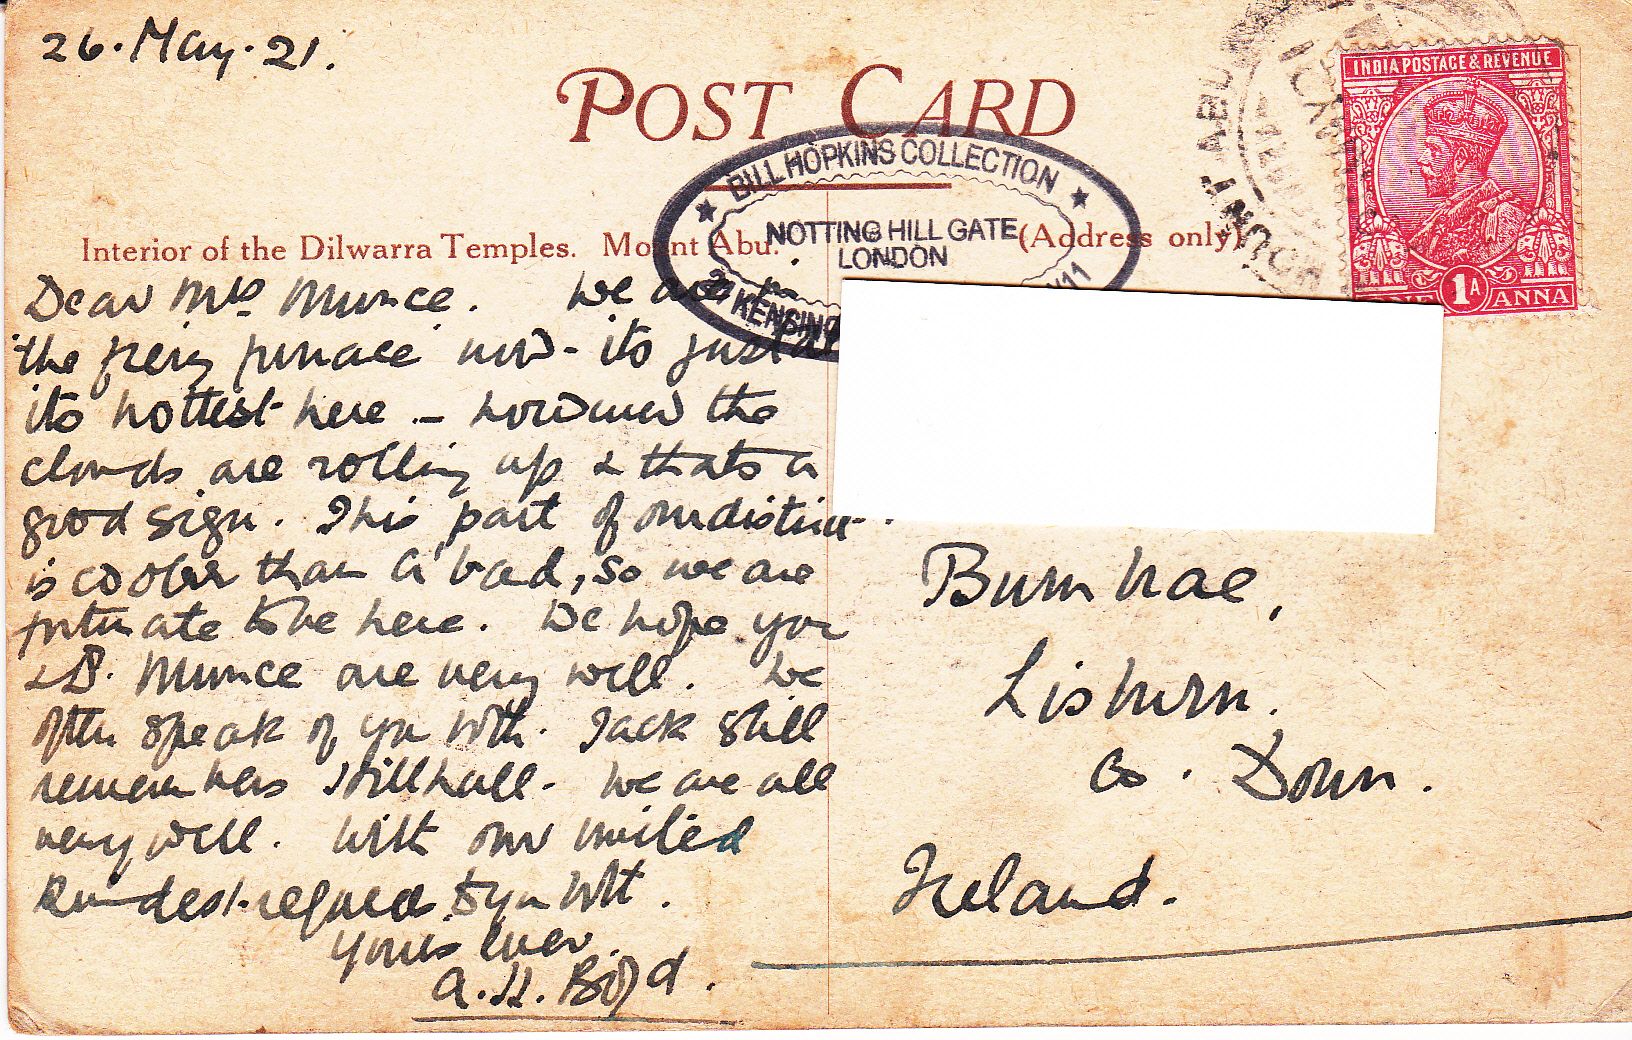 26. May. 21.
POST CARD
INDIA POSTAGE & REVENUE
ONE 1A ANNA
MOUNT ABU
BILL HOPKINS COLLECTION
NOTTING HILL GATE
LONDON
Interior of the Dilwarra Temples. Mount Abu.
(Address only)
Dear Mrs Munce. We are in
the fiery furnace now - its just at
its hottest here - however the
clouds are rolling up & thats a
good sign. This part of our district
is cooler than A'bad, so we are
fortunate to be here. We hope you
& D. Munce are very well. We
often speak of you both. Jack still
remembers Hillhall. We are all
very well. With our united
kindest regards to you both.
Yours ever
A. H. Boyd.
Burnbrae,
Lisburn.
Co. Down.
Ireland.